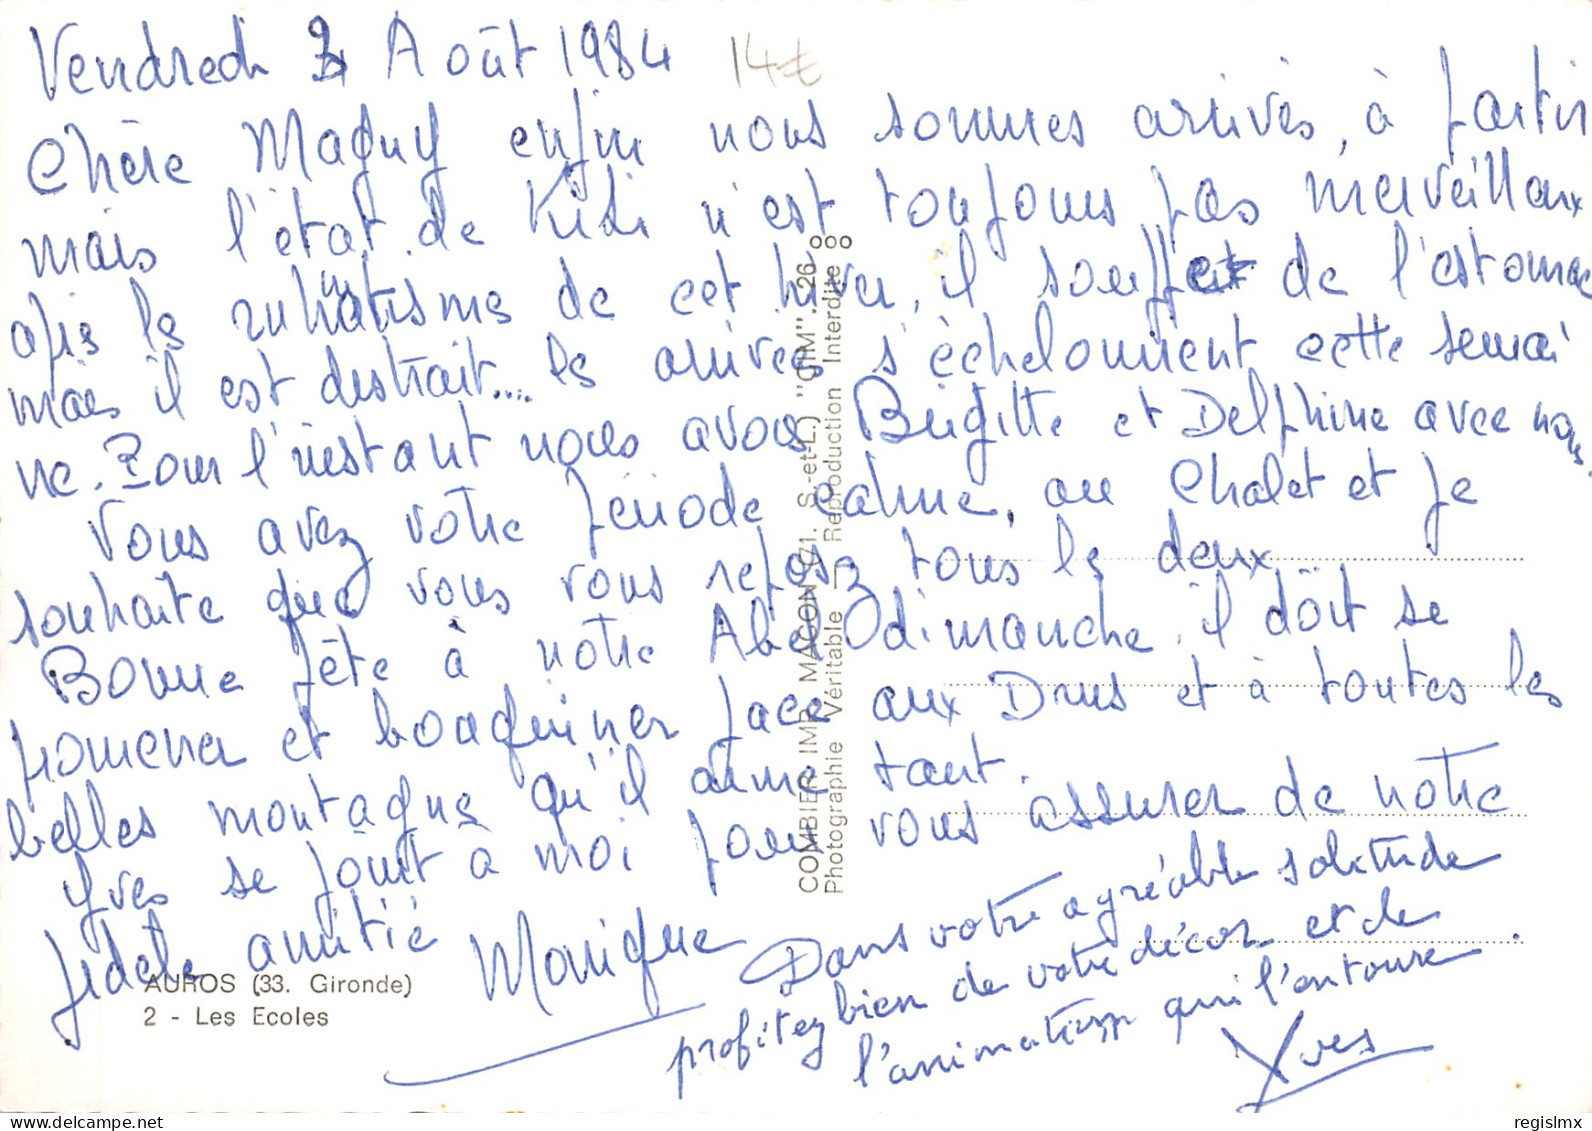 Vendredi 3 Août 1984
14€
Chère Maguy enfin nous sommes arrivés, à partir
mais l'état de Kiki n'est toujours pas merveilleux
après les rhumatismes de cet hiver, il souffre de l'estomac
mais il est distrait... les arrivées s'échelonnent cette semai
ne. Pour l'instant nous avons Brigitte et Delphine avec nous.
Vous avez votre période calme, au Chalet et je
souhaite que vous vous reposez tous les deux
Bonne fête à notre Abel dimanche. il doit se
promener et bouquiner face aux Drus et à toutes les
belles montagnes qu'il aime tant.
Yves se joint à moi pour vous assurer de notre
fidèle amitié Monique
Dans votre agréable solitude
profitez bien de votre décor et de
l'animation qui l'entoure.
Yves
AUROS (33. Gironde)
2 - Les Ecoles
COMBIER IMP. MACON (71. S.-et-L.) "CIM" 26
Photographie Véritable — Reproduction Interdite
regislmx